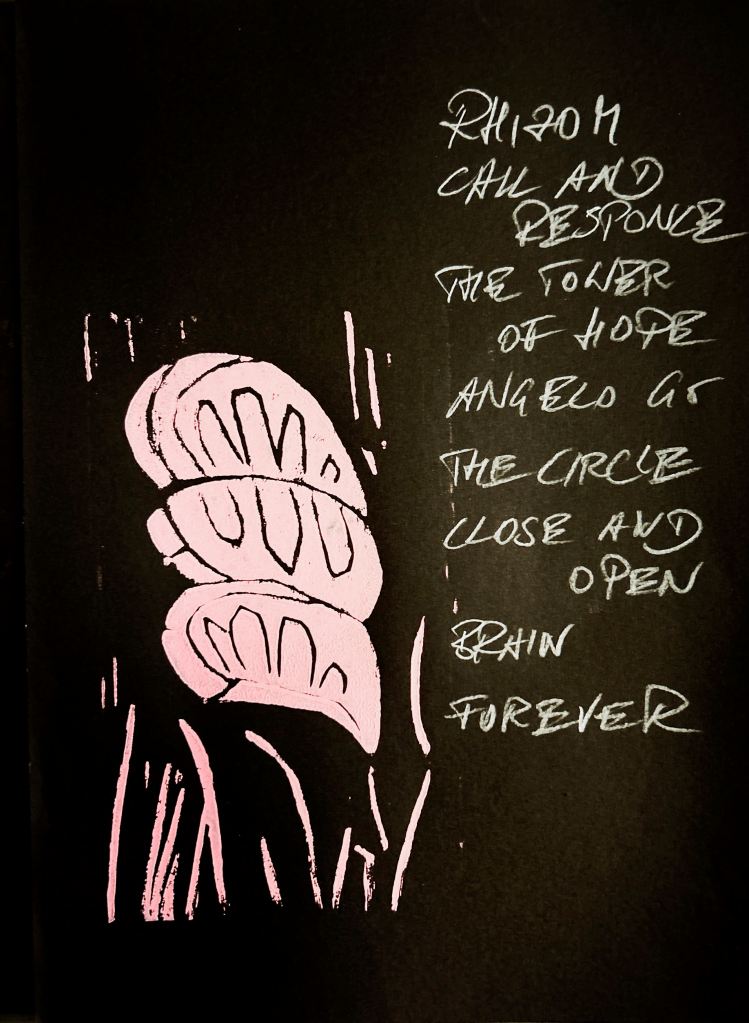 RHIZOM
CALL AND
RESPONCE
THE TOWER
OF HOPE
ANGELO
THE CIRCLE
CLOSE AND
OPEN
BRAIN
FOREVER